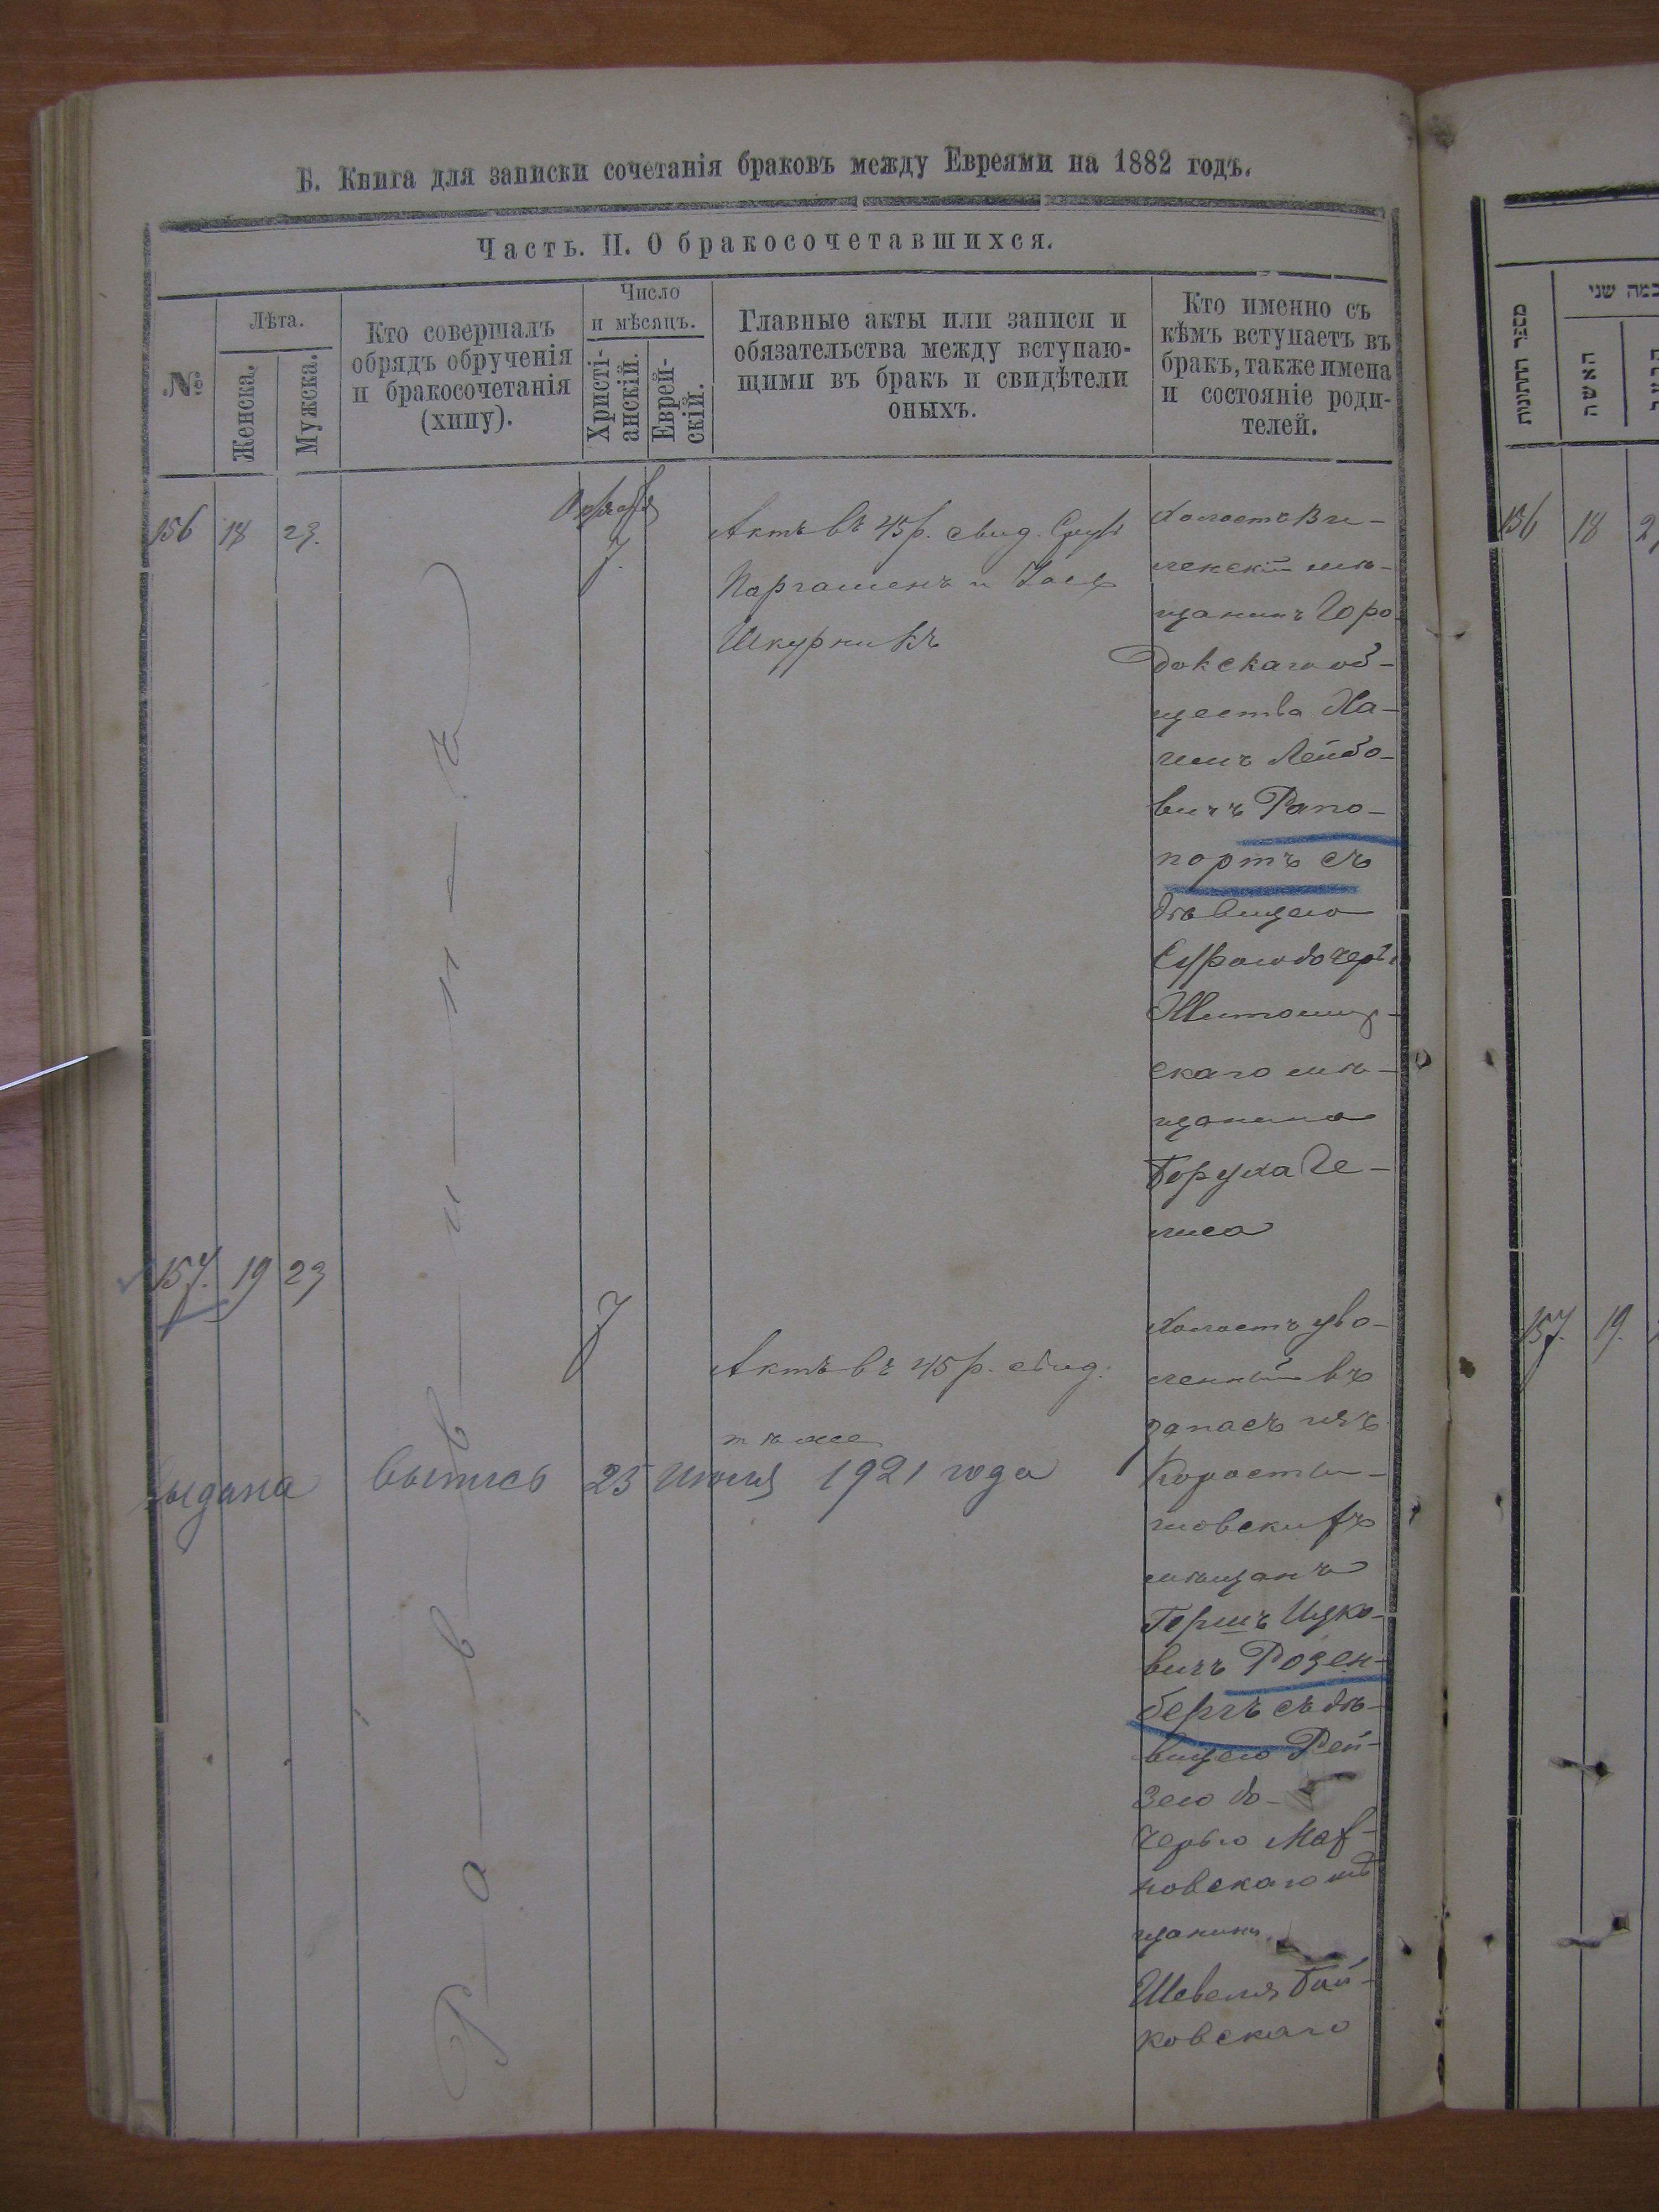 Б. Книга для записки сочетанія браковъ между Евреями на 1882 годъ.
Часть. II. О бракосочетавшихся.
№
Лѣта.
Женска.
Мужска.
Кто совершалъ
обрядъ обрученія
и бракосочетанія
(хипу).
Число
и мѣсяцъ.
Христі-
анскій.
Еврей-
скій.
Главные акты или записи и
обязательства между вступаю-
щими въ бракъ и свидѣтели
оныхъ.
Кто именно съ
кѣмъ вступаетъ въ
бракъ, также имена
и состояніе роди-
телей.
156 18 23.
Раввинъ
7.
Актъ въ 45 р. свид.
Паргаменъ и
Шкурникъ
Холостъ Ви-
ленскій мѣ-
щанинъ Горо
докскаго об-
щества Ха-
имъ Лейбо-
вичъ Рапо-
портъ съ
дѣвицею
Сурою дочерью
Житомир-
скаго мѣ-
щанина
Боруха Ге-
лиса
157. 19 23
7
Актъ въ 45 р. свид.
тѣ же
Холостъ уво-
ленный въ
запасъ изъ
Корости-
шовскихъ
мѣщанъ
Гершъ Ицко-
вичъ Розен-
бергъ съ дѣ-
вицею Рей-
зею до-
черью Мах-
новскаго мѣ
щанина
Шевеля Бай-
ковскаго
Выдана выпись 25 июля 1921 года
מספר החתונות
כמה שני
האשה
156 18
157. 19.